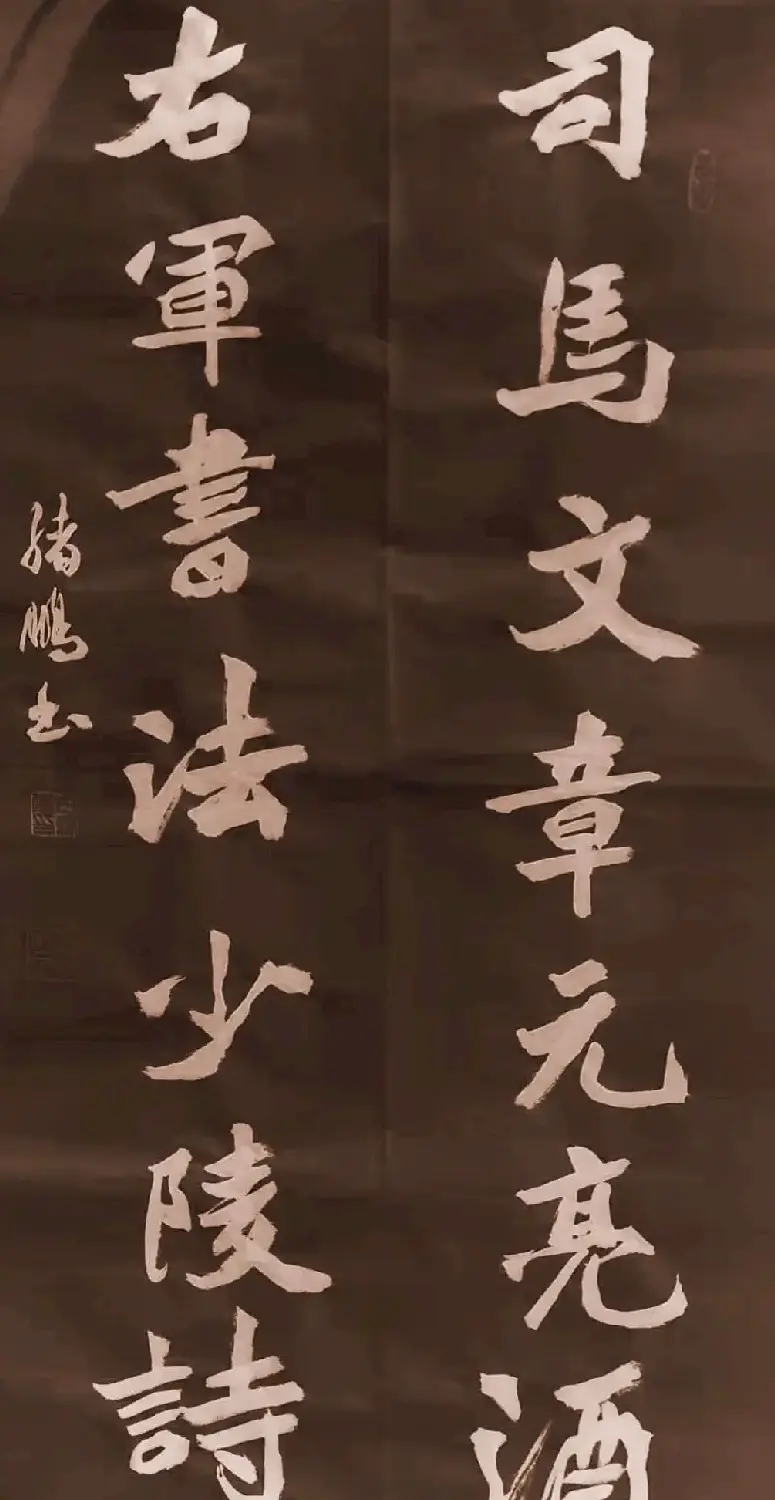 司馬文章元亮酒
右軍書法少陵詩
鵬书